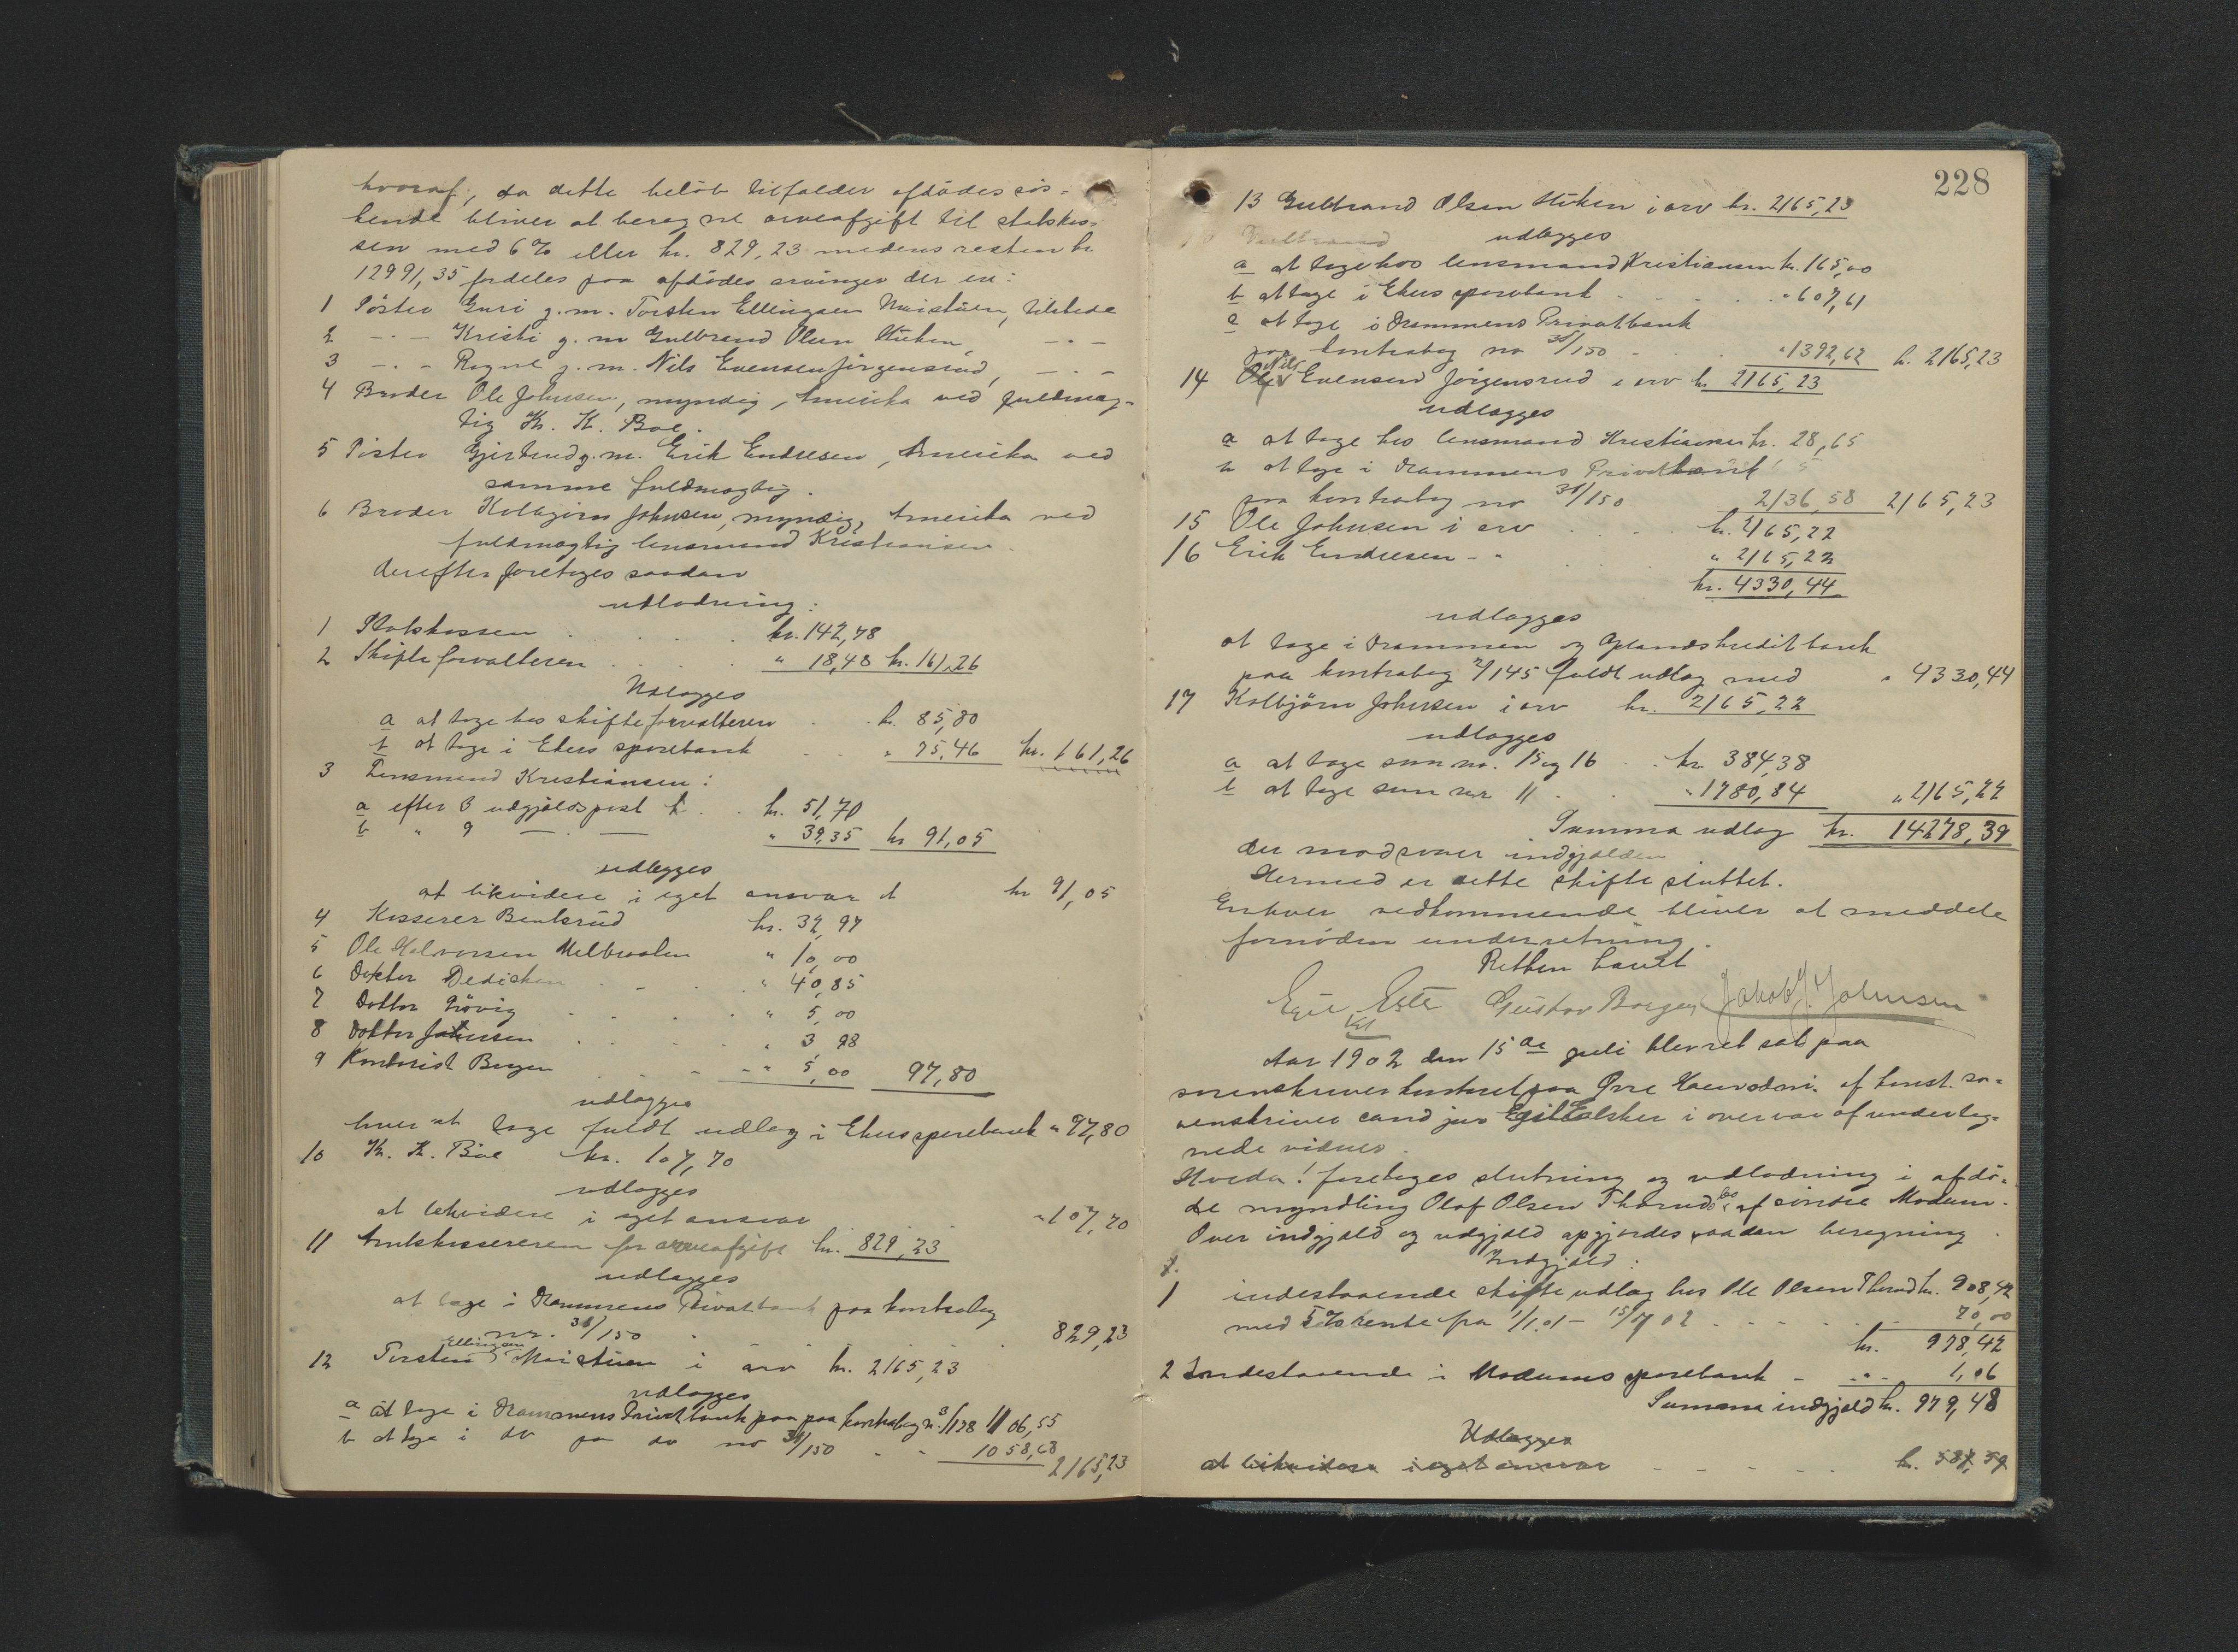 hvoraf, da dette beløb tilfalder afdødes sös-
kende bliver at beregne arveafgift til statskas-
sen med 6% eller kr. 829,23 medens resten kr
12991,35 fordeles paa afdødes arvinger der er:
1 Söster Guri g.m. Torsten Ellingsen Moistuen, tilstede
2 -"- Kristi g.m Gulbrand Olsen Stuken, -"-
3 -"- Ragne g.m. Nils Evensen Jörgensrud, -"-
4 Broder Ole Johnsen, myndig, Amerika ved fuldmæg-
tig Kr. K. Boe.
5 Söster Gjertrud g.m. Erik Endresen, Amerika ved
samme fuldmægtig.
6 Broder Kolbjørn Johnsen, myndig, Amerika ved
fuldmægtig lensmand Kristiansen.
Derefter foretages saadan
udlodning:
1 Statskassen . . . . kr. 142,78
2 Skifteforvalteren . . . . " 18,48 kr. 161,26
Udlægges
a at tage hos skifteforvalteren . . k. 85,80
b at tage i Ekers sparebank . . " 75,46 kr. 161,26
3 Lensmand Kristiansen:
a efter B udgjeldspost . . kr. 51,70
b " 9 -"- " 39,35 kr 91,05
udlægges
at likvidere i eget ansvar kr 91,05
4 Kasserer Bentsrud kr. 32,97
5 Ole Halvorsen Melbraaten " 10,00
6 Doktor Dedichen . . . " 40,85
7 Doktor Grövig . . . . " 5,00
8 Doktor Johnsen . . . . " 3,98
9 Kontorist Borgen . . . " 5,00 97,80
udlægges
hver at tage fuldt udlæg i Ekers sparebank " 97,80
10 Kr. K. Böe kr. 107,70
udlægges
at likvidere i eget ansvar " 107,70
11 Amtskassereren for arveafgift kr. 829,23
udlægges
at tage i Drammens Privatbank paa kontrabog
nr. 38/150 829,23
12 Torsten Ellingsen Moistuen i arv kr. 2165,23
udlægges
a at tage i Drammens Privatbank paa paa kontrabog n. 3/178 1106,55
b at tage i do paa do no 38/150 . . 1058,68 2165,23
228
13 Gulbrand Olsen Stuken i arv kr. 2165,23
Gulbrand udlægges
a at tage hos lensmand Kristiansen kr. 165,00
b at tage i Ekers sparebank . . . . " 607,61
c at tage i Drammens Privatbank
paa kontrabog no 38/150 . . " 1392,62 k. 2165,23
14 Ole Nils Evensen Jörgensrud i arv kr 2165,23
udlægges
a at tage hos lensmand Kristiansen kr. 28,65
b at tage i Drammens Privatbank
paa kontrabog no 38/150 2136,58 2165,23
15 Ole Johnsen i arv . . . . kr. 2165,22
16 Erik Endresen -"- . . " 2165,22
kr. 4330,44
udlægges
at tage i Drammen og Oplands kreditbank
paa kontrabog 2/145 fuldt udlæg med " 4330,44
17 Kolbjörn Johnsen i arv kr. 2165,22
udlægges
a at tage som no. 15 og 16 . . kr. 384,38
b at tage som nr 11 . . " 1780,84 " 2165,22
Summa udlæg kr. 14278,39
der modsvarer indgjælden
Hermed er dette skifte sluttet.
Enhver vedkommende bliver at meddele
fornøden underretning.
Retten hævet
Gustav Borgen Jakob J. Johnsen
Aar 1902 den 15de juli blev ret sat paa
sorenskriverkontoret paa Övre af konst. so-
renskriver cand jur Egil i overvær af underteg-
nede vidner.
Hvorda! foretages slutning og udlodning i afdö-
de myndling Olaf Olsen Thoruds bo af söndre Modum.
Over indgjæld og udgjæld opgjordes saadan beregning.
Indgjæld:
1 indestaaende skifteudlæg hos Ole Olsen Thorud kr. 908,42
med 5% rente fra 1/1.01 - 15/7 02 . . . . . 70,00
kr. 978,42
2 Indestaaende i Modums sparebank - -"- 1,06
Summa indgjæld kr. 979,48
Udlægges
at likvidere i eget ansvar - - - - - k. 587,59